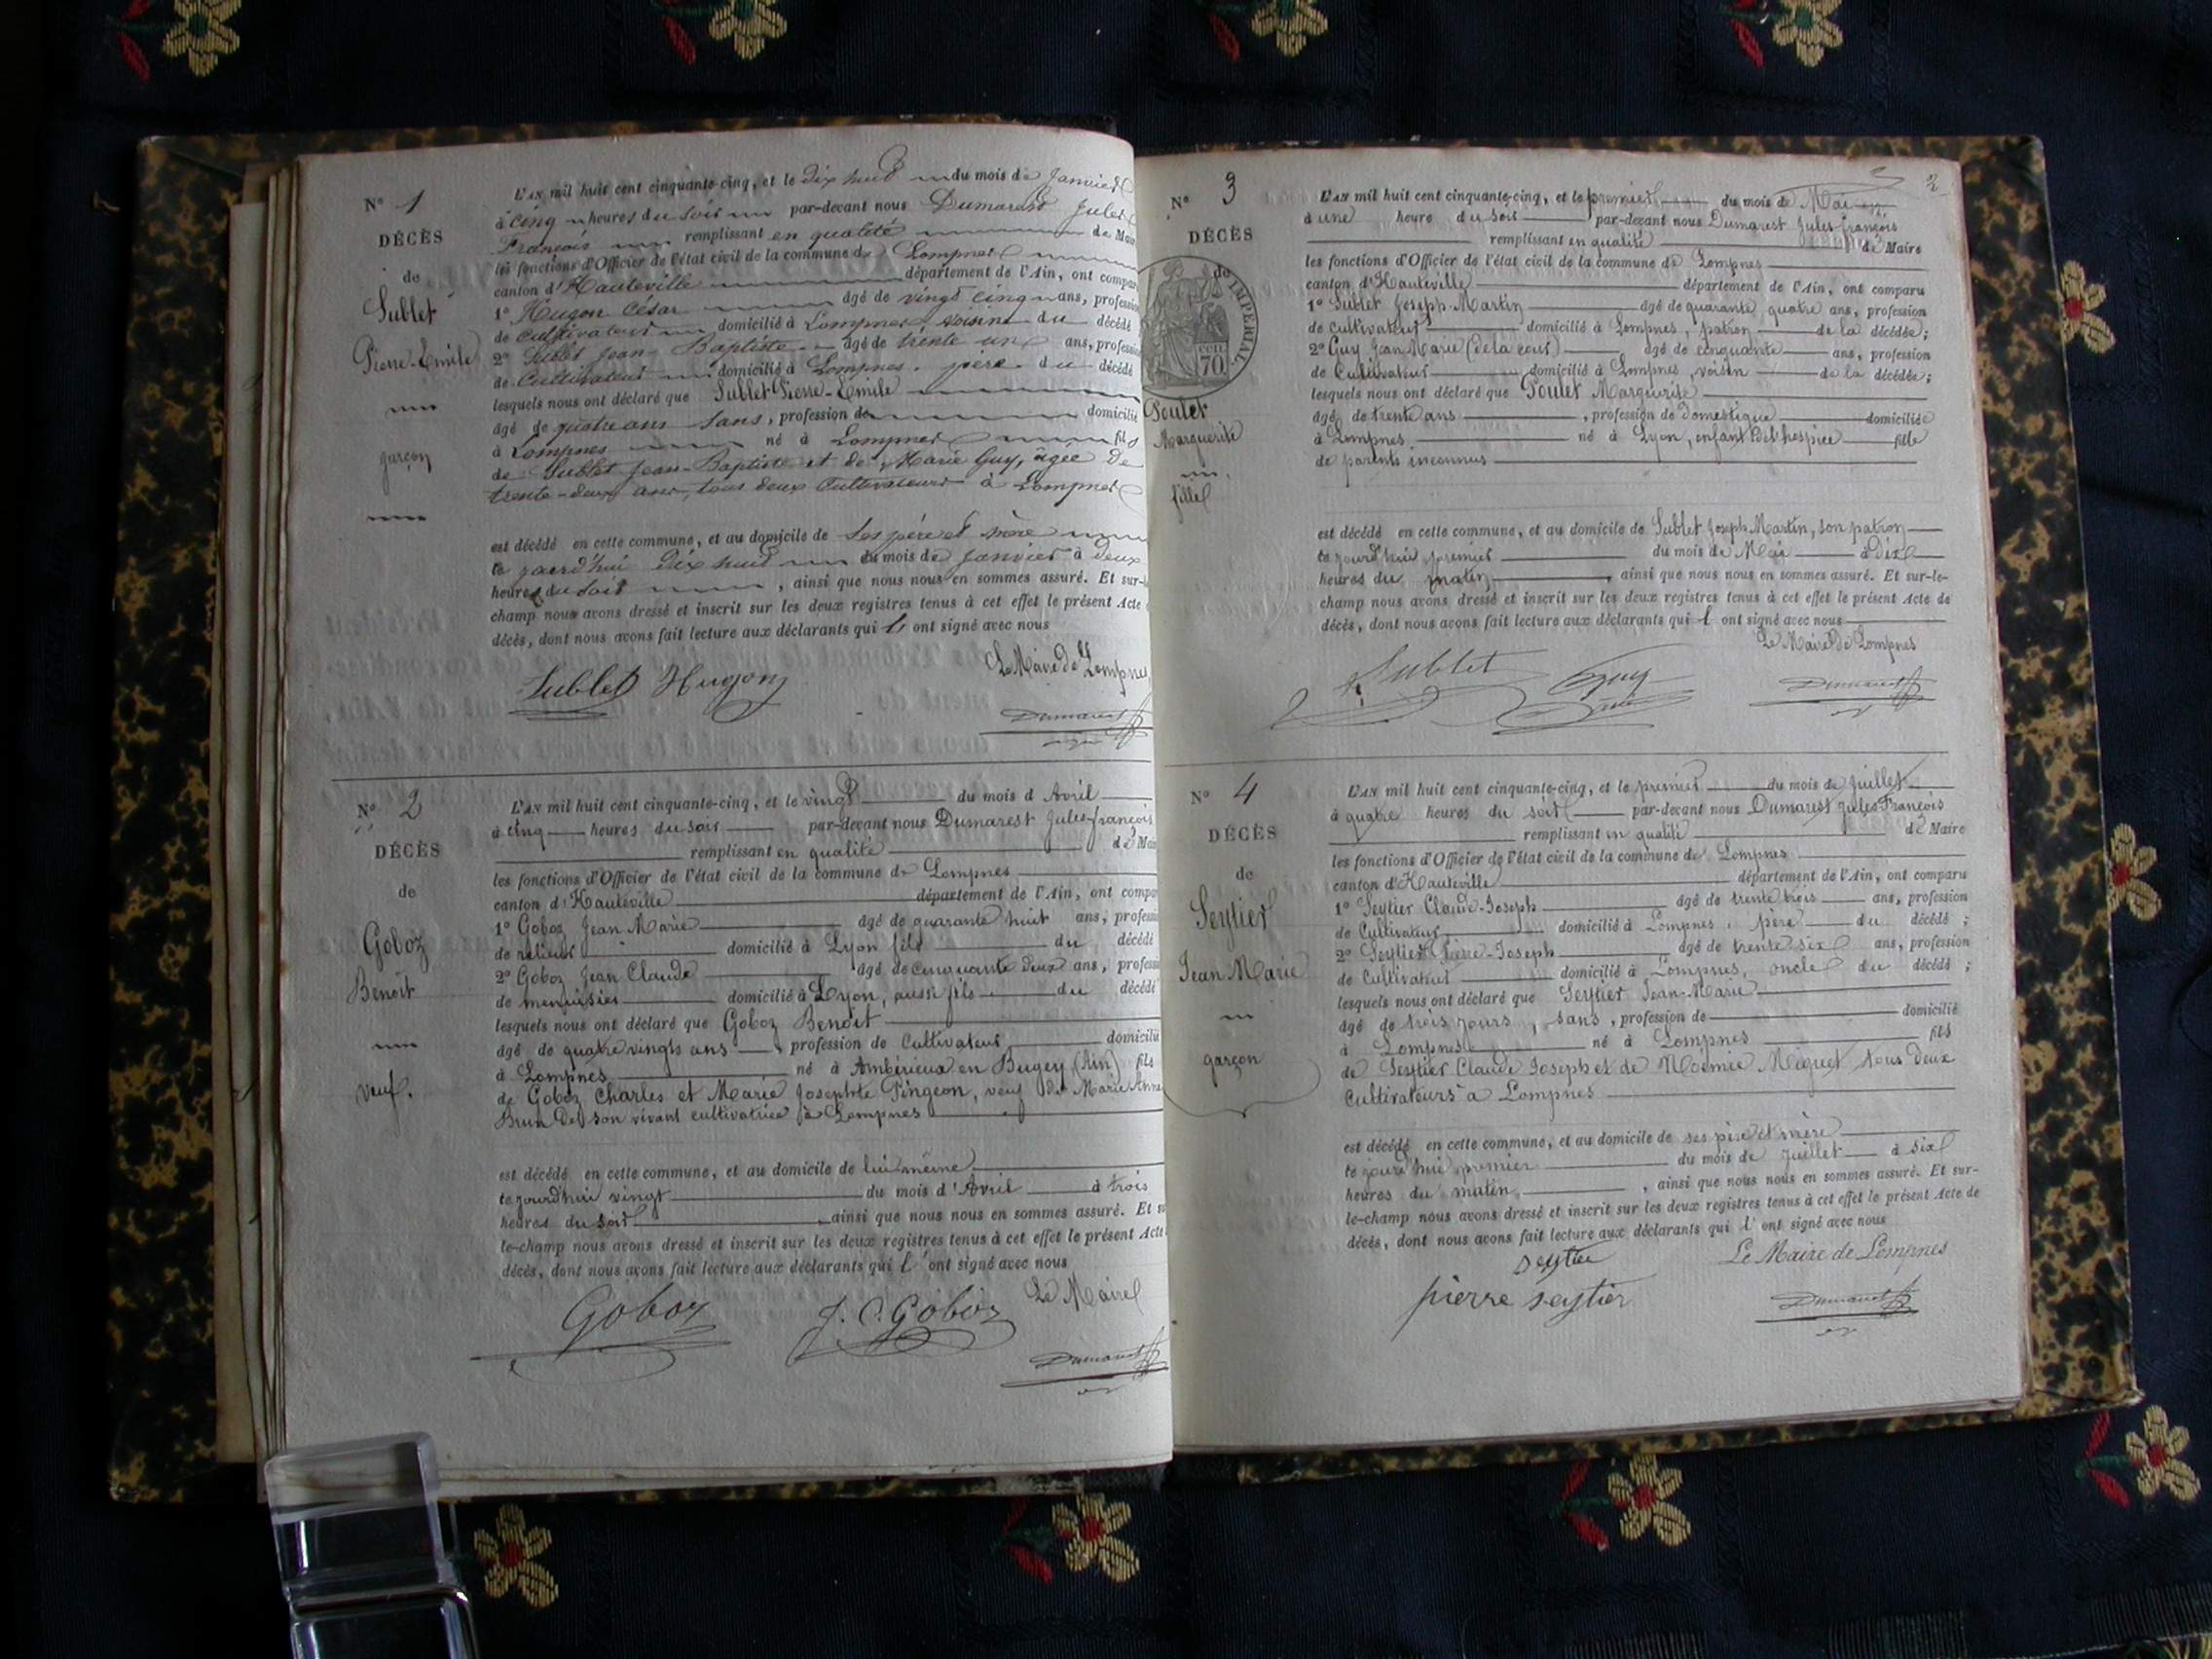 N° 1
DÉCÈS
de
Sublet
Pierre-Emile
garçon
L'AN mil huit cent cinquante-cinq, et le dix huit du mois de Janvier
à cinq heures du soir par-devant nous Dumarest Jules
François remplissant en qualité de Mair
les fonctions d'Officier de l'état civil de la commune de Lompnes
canton d'Hauteville département de l'Ain, ont compar
1° Hugon César âgé de vingt cinq ans, profession
de cultivateur domicilié à Lompnes voisin du décédé
2° Sublet Jean-Baptiste âgé de trente un ans, profession
de Cultivateur domicilié à Lompnes, père du décédé
lesquels nous ont déclaré que Sublet Pierre-Emile
âgé de quatre ans sans, profession de domicilié
à Lompnes né à Lompnes fils
de Sublet Jean-Baptiste et de Marie Guy, âgée de
trente-deux ans, tous deux Cultivateurs à Lompnes
est décédé en cette commune, et au domicile de ses père et mère
ce jourd'hui dix huit du mois de Janvier à deux
heures du soir, ainsi que nous nous en sommes assuré. Et sur-le-
champ nous avons dressé et inscrit sur les deux registres tenus à cet effet le présent Acte
décès, dont nous avons fait lecture aux déclarants qui l'ont signé avec nous
Le Maire de Lompnes
Sublet Hugon
Dumarest
N° 2
DÉCÈS
de
Goboz
Benoît
veuf.
L'AN mil huit cent cinquante-cinq, et le vingt du mois d'Avril
à cinq heures du soir par-devant nous Dumarest Jules françois
remplissant en qualité de Mair
les fonctions d'Officier de l'état civil de la commune de Lompnes
canton d'Hauteville département de l'Ain, ont compar
1° Goboz Jean Marie âgé de quarante huit ans, profession
de relieur domicilié à Lyon fils du décédé
2° Goboz Jean Claude âgé de cinquante deux ans, profession
de menuisier domicilié à Lyon, aussi fils du décédé
lesquels nous ont déclaré que Goboz Benoît
âgé de quatre vingts ans, profession de Cultivateur domicilié
à Lompnes né à Ambérieux en Bugey (Ain) fils
de Goboz Charles et Marie Josephte Pingeon, veuf de Marie Anne
Brun de son vivant cultivatrice à Lompnes
est décédé en cette commune, et au domicile de lui même
ce jourd'hui vingt du mois d'Avril à trois
heures du soir ainsi que nous nous en sommes assuré. Et sur-
le-champ nous avons dressé et inscrit sur les deux registres tenus à cet effet le présent Acte
décès, dont nous avons fait lecture aux déclarants qui l'ont signé avec nous
Le Maire
Goboz J. C. Goboz
Dumarest
2
N° 3
DÉCÈS
de
IMPERIAL
cen
70
Poulet
Marguerite
fille
L'AN mil huit cent cinquante-cinq, et le premier du mois de Mai
à une heure du soir par-devant nous Dumarest Jules-françois
remplissant en qualité de Maire
les fonctions d'Officier de l'état civil de la commune de Lompnes
canton d'Hauteville département de l'Ain, ont comparu
1° Sublet Joseph-Martin âgé de quarante quatre ans, profession
de cultivateur domicilié à Lompnes, patron de la décédée;
2° Guy Jean Marie (de la cour) âgé de cinquante ans, profession
de Cultivateur domicilié à Lompnes, voisin de la décédée;
lesquels nous ont déclaré que Poulet Marguerite
âgé de trente ans, profession de domestique domiciliée
à Lompnes né à Lyon, enfant de l'hospice fille
de parents inconnus
est décédé en cette commune, et au domicile de Sublet Joseph Martin, son patron
ce jourd'hui premier du mois de Mai à dix
heures du matin, ainsi que nous nous en sommes assuré. Et sur-le-
champ nous avons dressé et inscrit sur les deux registres tenus à cet effet le présent Acte de
décès, dont nous avons fait lecture aux déclarants qui l'ont signé avec nous
Le Maire de Lompnes
Sublet Guy
Dumarest
N° 4
DÉCÈS
de
Seytier
Jean Marie
garçon
L'AN mil huit cent cinquante-cinq, et le premier du mois de Juillet
à quatre heures du soir par-devant nous Dumarest Jules François
remplissant en qualité de Maire
les fonctions d'Officier de l'état civil de la commune de Lompnes
canton d'Hauteville département de l'Ain, ont comparu
1° Seytier Claude-Joseph âgé de trente trois ans, profession
de Cultivateur domicilié à Lompnes, père du décédé;
2° Seytier Pierre-Joseph âgé de trente six ans, profession
de Cultivateur domicilié à Lompnes, oncle du décédé;
lesquels nous ont déclaré que Seytier Jean-Marie
âgé de trois jours, sans, profession de domicilié
à Lompnes né à Lompnes fils
de Seytier Claude Joseph et de Noémie Miguet tous deux
Cultivateurs à Lompnes
est décédé en cette commune, et au domicile de ses père et mère
ce jourd'hui premier du mois de Juillet à six
heures du matin, ainsi que nous nous en sommes assuré. Et sur-
le-champ nous avons dressé et inscrit sur les deux registres tenus à cet effet le présent Acte de
décès, dont nous avons fait lecture aux déclarants qui l'ont signé avec nous
seytier Le Maire de Lompnes
pierre seytier
Dumarest